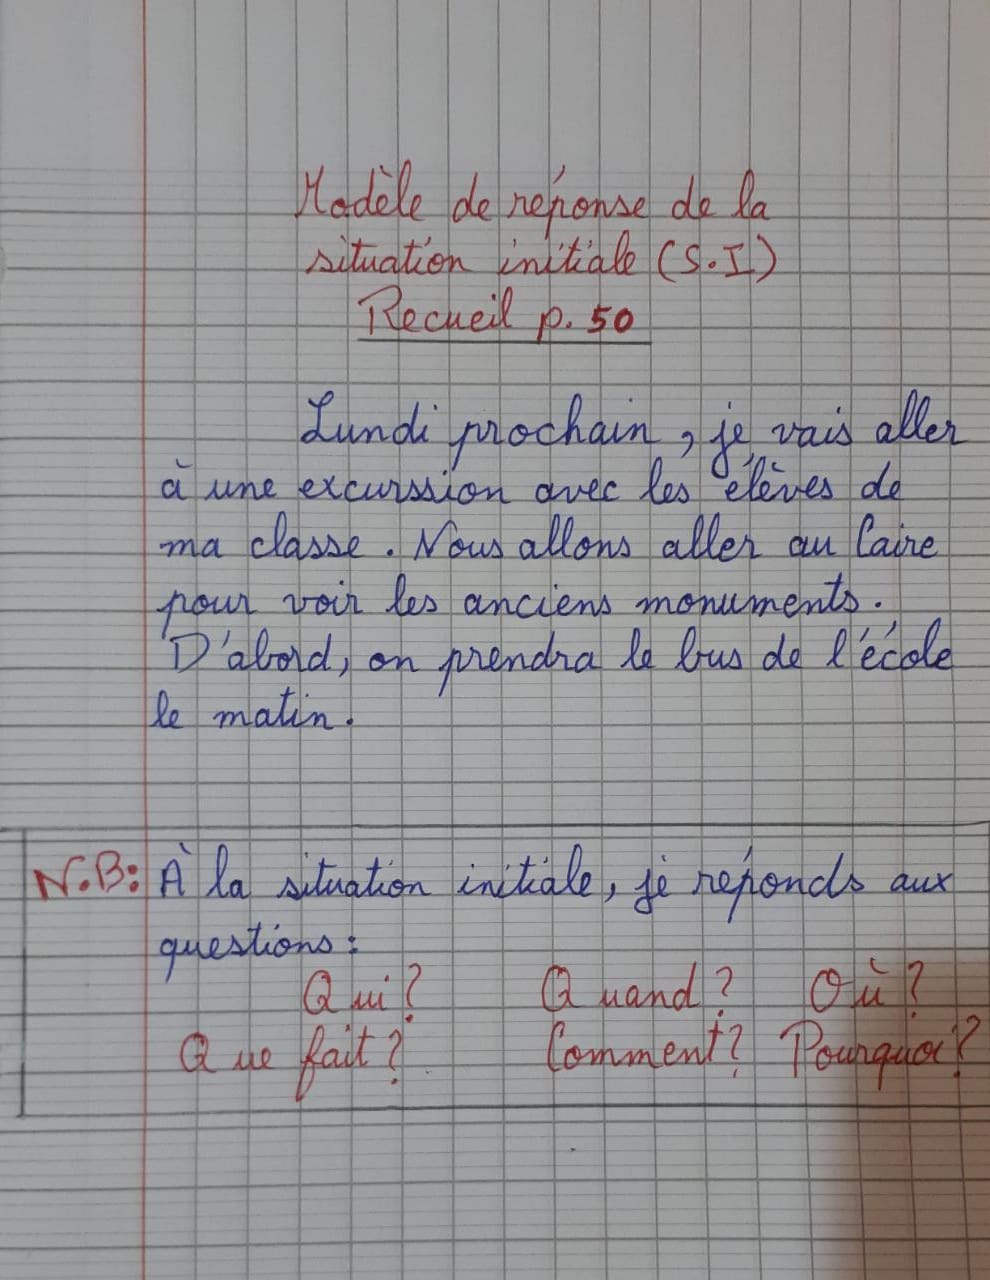 Modèle de réponse de la
situation initiale (S.I)
Recueil p. 50
Lundi prochain, je vais aller
à une excurssion avec les élèves de
ma classe. Nous allons aller au Caire
pour voir les anciens monuments.
D'abord, on prendra le bus de l'école
le matin.
N.B: À la situation initiale, je réponds aux
questions:
Qui? Quand? Où?
Que fait? Comment? Pourquoi?